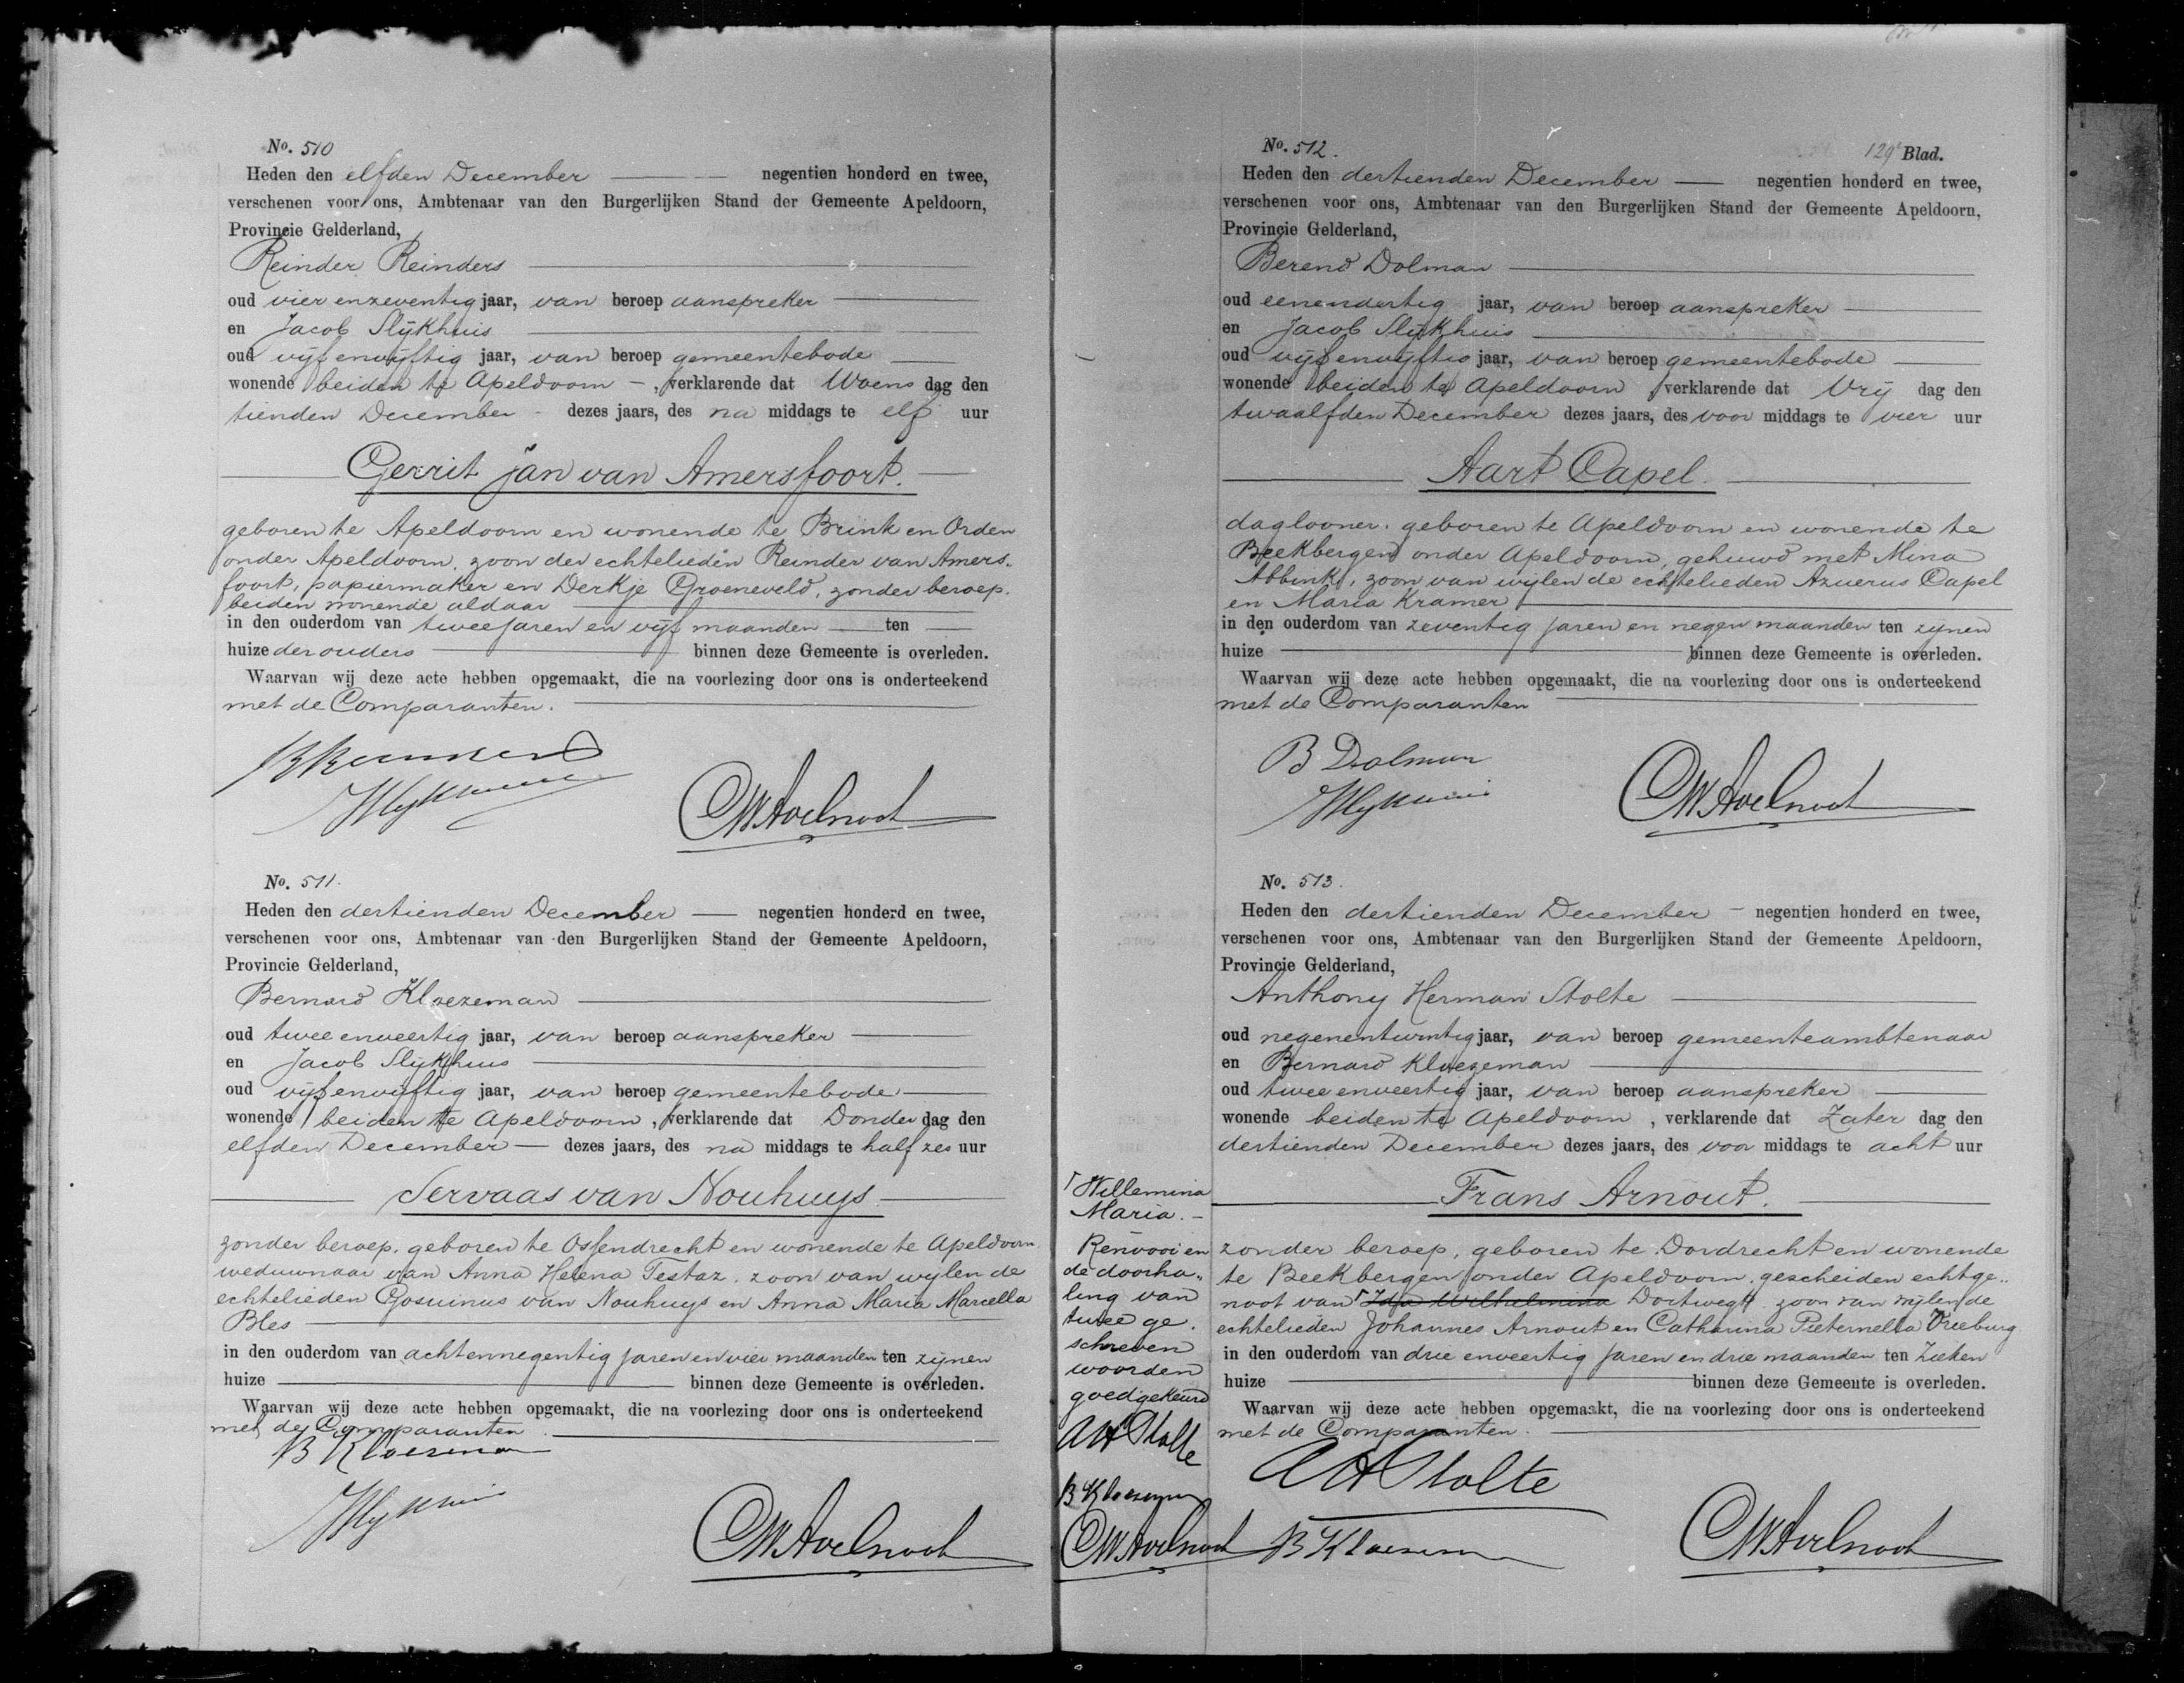 No. 510
Heden den elfden December negentien honderd en twee,
verschenen voor ons, Ambtenaar van den Burgerlijken Stand der Gemeente Apeldoorn,
Provincie Gelderland,
Reinder Reinders
oud vier enzeventig jaar, van beroep aanspreker
en Jacob Slijkhuis
oud vijfenvijftig jaar, van beroep gemeentebode
wonende beiden te Apeldoorn, verklarende dat Woens dag den
tienden December dezes jaars, des na middags te elf uur
Gerrit Jan van Amersfoort.
geboren te Apeldoorn en wonende te Brink en Orden
onder Apeldoorn, zoon der echtelieden Reinder van Amers„
foort, papiermaker en Derkje Groeneveld, zonder beroep.
beiden wonende aldaar
in den ouderdom van twee jaren en vijf maanden ten
huize der ouders binnen deze Gemeente is overleden.
Waarvan wij deze acte hebben opgemaakt, die na voorlezing door ons is onderteekend
met de Comparanten.
No. 511.
Heden den dertienden December negentien honderd en twee,
verschenen voor ons, Ambtenaar van den Burgerlijken Stand der Gemeente Apeldoorn,
Provincie Gelderland,
Bernard Kloezeman
oud twee enveertig jaar, van beroep aanspreker
en Jacob Slijkhuis
oud vijfenvijftig jaar, van beroep gemeentebode
wonende beiden te Apeldoorn, verklarende dat Donder dag den
elfden December dezes jaars, des na middags te half zes uur
Servaas van Nouhuys
zonder beroep, geboren te Ossendrecht en wonende te Apeldoorn
weduwnaar van Anna Helena Testaz, zoon van wijlen de
echtelieden Gosuinus van Nouhuys en Anna Maria Marcella
Bles
in den ouderdom van achtennegentig jaren en vier maanden ten zijnen
huize binnen deze Gemeente is overleden.
Waarvan wij deze acte hebben opgemaakt, die na voorlezing door ons is onderteekend
met de Comparanten
B Kloezeman
No. 512. 129e Blad.
Heden den dertienden December negentien honderd en twee,
verschenen voor ons, Ambtenaar van den Burgerlijken Stand der Gemeente Apeldoorn,
Provincie Gelderland,
Berend Dolman
oud eenendertig jaar, van beroep aanspreker
en Jacob Slijkhuis
oud vijfenvijftig jaar, van beroep gemeentebode
wonende beiden te Apeldoorn verklarende dat Vrij dag den
twaalfden December dezes jaars, des voor middags te vier uur
Aart Capel.
daglooner, geboren te Apeldoorn en wonende te
Beekbergen onder Apeldoorn, gehuwd met Mina
Abbink, zoon van wijlen de echtelieden Azuerus Capel
en Maria Kramer
in den ouderdom van zeventig jaren en negen maanden ten zijnen
huize binnen deze Gemeente is overleden.
Waarvan wij deze acte hebben opgemaakt, die na voorlezing door ons is onderteekend
met de Comparanten
B Dolman
No. 513.
Heden den dertienden December negentien honderd en twee,
verschenen voor ons, Ambtenaar van den Burgerlijken Stand der Gemeente Apeldoorn,
Provincie Gelderland,
Anthony Herman Stolte
oud negenentwintig jaar, van beroep gemeenteambtenaar
en Bernard Kloezeman
oud twee enveertig jaar, van beroep aanspreker
wonende beiden te Apeldoorn, verklarende dat Zater dag den
dertienden December dezes jaars, des voor middags te acht uur
Frans Arnout.
zonder beroep, geboren te Dordrecht en wonende
te Beekbergen onder Apeldoorn, gescheiden echtge„
noot van Ida Wilhelmina Dortwegt zoon van wijlen de
echtelieden Johannes Arnout en Catharina Pieternella Vreeburg
in den ouderdom van drie enveertig jaren en drie maanden ten Zieken
huize binnen deze Gemeente is overleden.
Waarvan wij deze acte hebben opgemaakt, die na voorlezing door ons is onderteekend
met de Comparanten.
AH Stolte
B Kloezeman
Willemina
Maria.
Renvooi en
de doorha„
ling van
twee ge.
schreven
woorden
goedgekeurd
AH Stolte
B Kloezeman